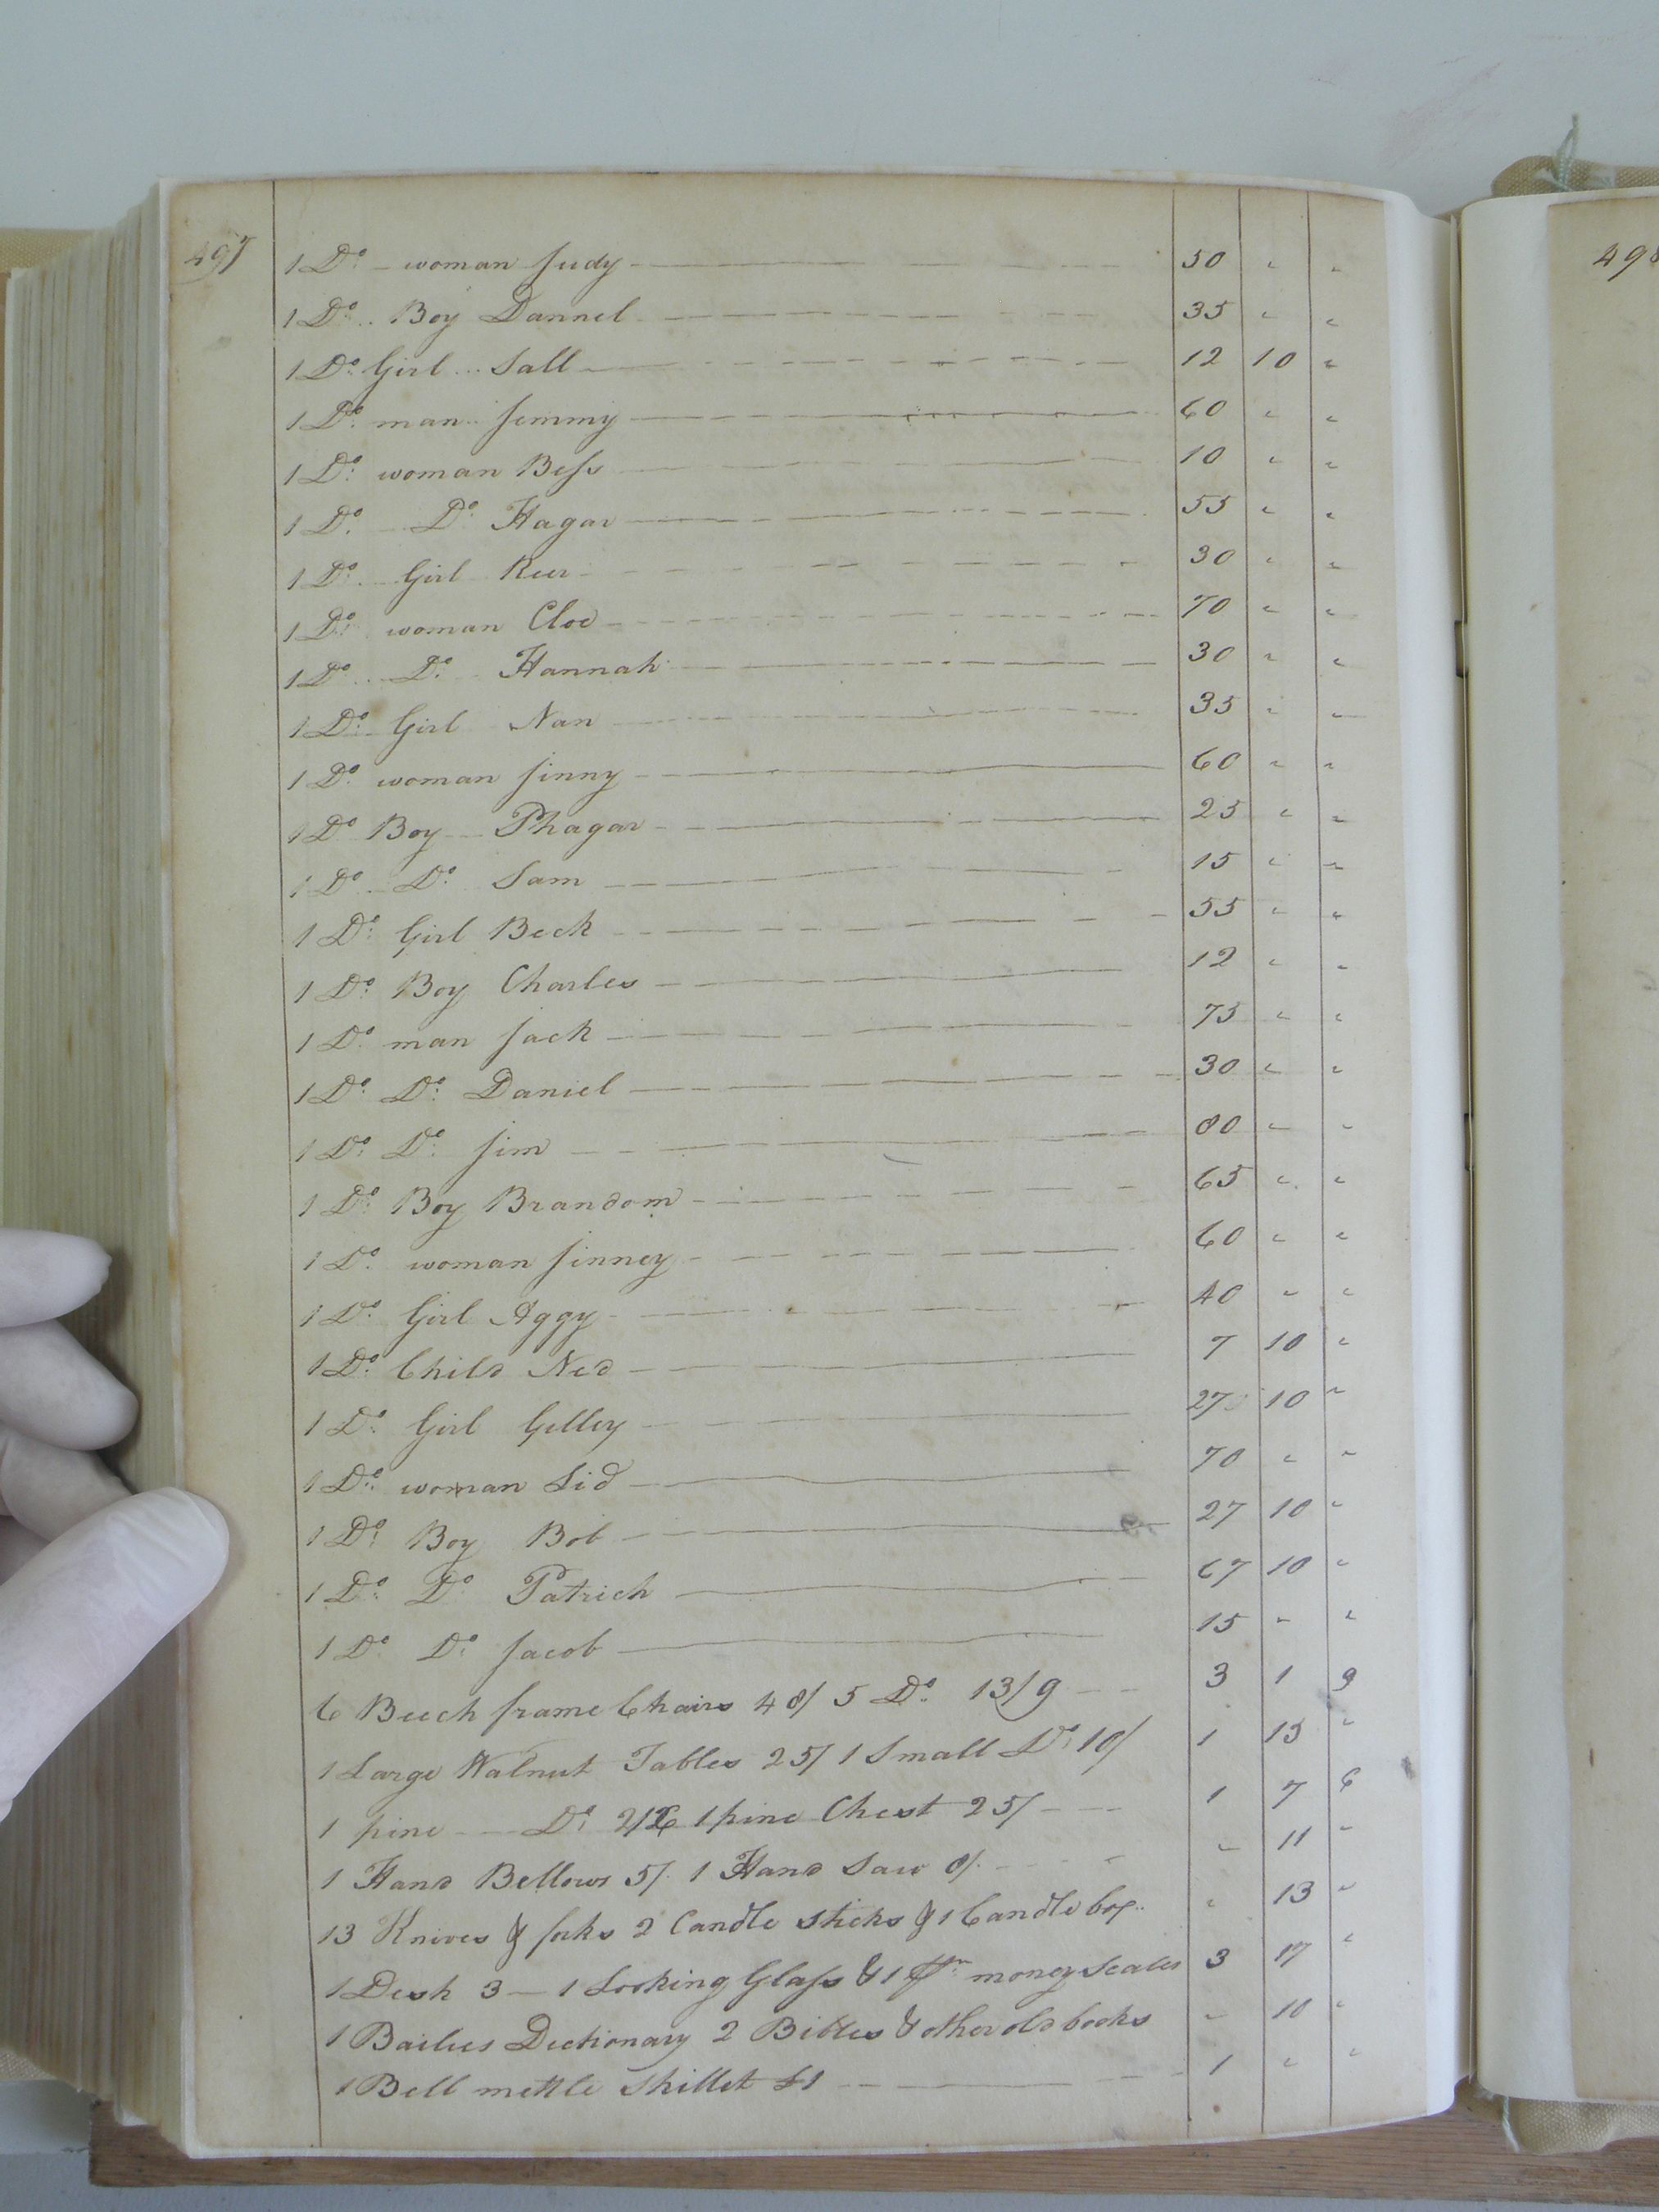 497
1 Do. - woman Judy - 50 " "
1 Do. Boy Dannel - 35 " "
1 Do. Girl Sall - 12 10 "
1 Do. man Jemmy - 60 " "
1 Do. woman Bess - 10 " "
1 Do. Do. Hagar - 55 " "
1 Do. Girl - 30 " "
1 Do. woman Cloe - 70 " "
1 Do. Do. Hannah - 30 " "
1 Do. Girl Nan - 35 " "
1 Do. woman Jinny - 60 " "
1 Do Boy Phagar - 25 " "
1 Do Do. Sam - 15 " "
1 Do. Girl Beck - 55 " "
1 Do. Boy Charles - 12 " "
1 Do. man Jack - 75 " "
1 Do. Do. Daniel - 30 " "
1 Do. Do. Jim - 80 " "
1 Do. Boy Brandom - 65 " "
1 Do. woman Jinney - 60 " "
1 Do. Girl Aggy - 40 " "
1 Do. Child Ned - 7 10 "
1 Do. Girl Gilley - 27 10 "
1 Do. woman Sid - 70 " "
1 Do. Boy Bob - 27 10 "
1 Do. Do. Patrick - 67 10 "
1 Do. Do. Jacob - 15 " "
6 Beech frame Chairs 48/ 5 Do. 13/9 - 3 1 9
1 Large Walnut Tables 25/ 1 Small Do. 10/ 1 15 "
1 pine Do. 2/6 1 pine Chest 25/ - 1 7 6
1 Hand Bellows 5/. 1 Hand Saw 6/. - " 11 "
13 Knives & forks 2 Candle sticks & 1 Candle box " 13 "
1 Desk 3 - 1 Looking Glass & 1 pr. money Scales 3 17 "
1 Bailies Dectionary 2 Bibles & other old books " 10 "
1 Bell mettle Skillet £1 - 1 " "
498